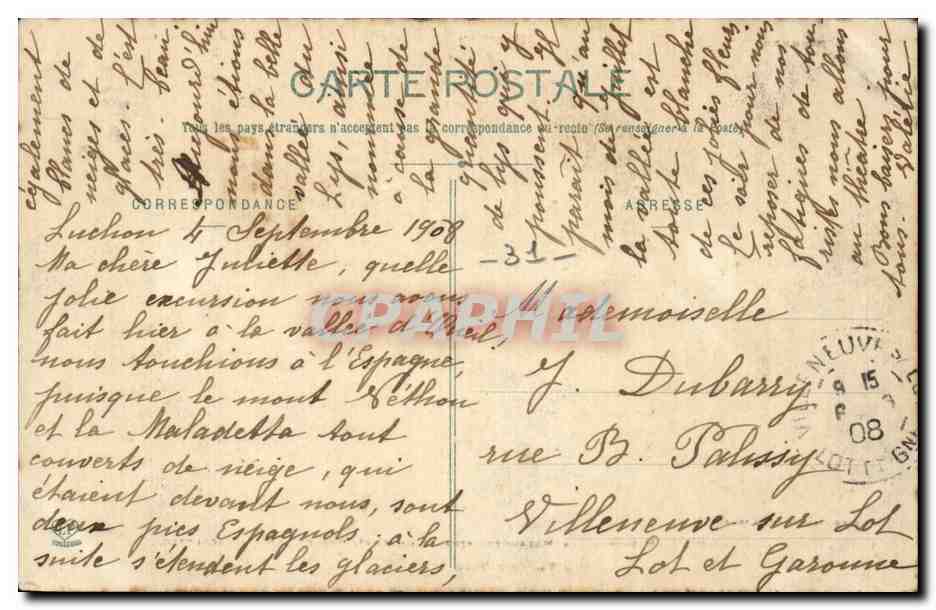 CARTE POSTALE
Tous les pays étrangers n'acceptent pas la correspondance au recto (Se renseigner à la Poste)
CORRESPONDANCE
ADRESSE
Luchon 4 Septembre 1908
Ma chère Juliette, quelle
jolie excursion nous avons
fait hier à la vallée
nous touchions à l'Espagne,
puisque le mont Néthou
et la Maladetta tout
couverts de neige, qui
étaient devant nous, sont
deux pics Espagnols; à la
suite s'étendent les glaciers,
également
blancs de
neiges et de
glaces. C'est
très beau
Aujourd'hui
nous étions
dans la belle
vallée du
Lys, ainsi
nommée
à cause de
la grande
quantité
de lys qui y
poussent. Il
paraît qu'au
mois de juillet
la vallée est
toute blanche
de ces jolies fleurs
Le soir pour nous
reposer de nos
fatigues de tou
ristes nous allons
au théâtre
Bons baisers pour
tous.
-31-
Mademoiselle
J. Dubarry
rue B. Palissy
Villeneuve sur Lot
Lot et Garonne
VILLENEUVE
9 15
08
LOT ET GNE
CPAPHIL